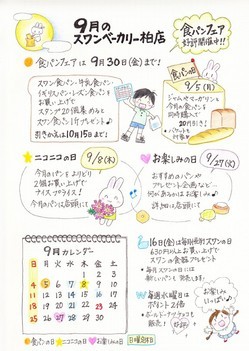 9月の
スワンベーカリー柏店
食パンフェア
好評開催中!!
食パンフェアは9月30日(金)まで!
スワン食パン・牛乳食パン・
イギリスパン・レーズン食パンを
お買い上げで
スタンプ20個集めると
スワン食パン1斤プレゼント♪
引きかえは10月15日まで
食パンの日
9/5(月)
ジャム・マーガリンと
今月の食パンを
同時購入で
20円引き!
ニコニコの日 9/8(木)
今月のパンを よりどり
2個お買い上げで
ナイスプライス
今月のパンは店頭にて
お楽しみの日
おすすめのパンや
プレゼント企画など…
何があるかはお楽しみ♪
詳細は店頭で
9月カレンダー
日 月 火 水 木 金 土
1 2 3
4 5 6 7 8 9 10
11 12 13 14 15 16 17
18 19 20 21 22 23 24
25 26 27 28 29 30
食パンの日 ニコニコの日 お楽しみの日 日曜定休日
16日(金)は毎月恒例スワンの日
600円以上お買い上げで
スワンの食器プレゼント
毎月スワンの日には
新しいパンも発売します
毎週水曜日は
ポイント2倍デー